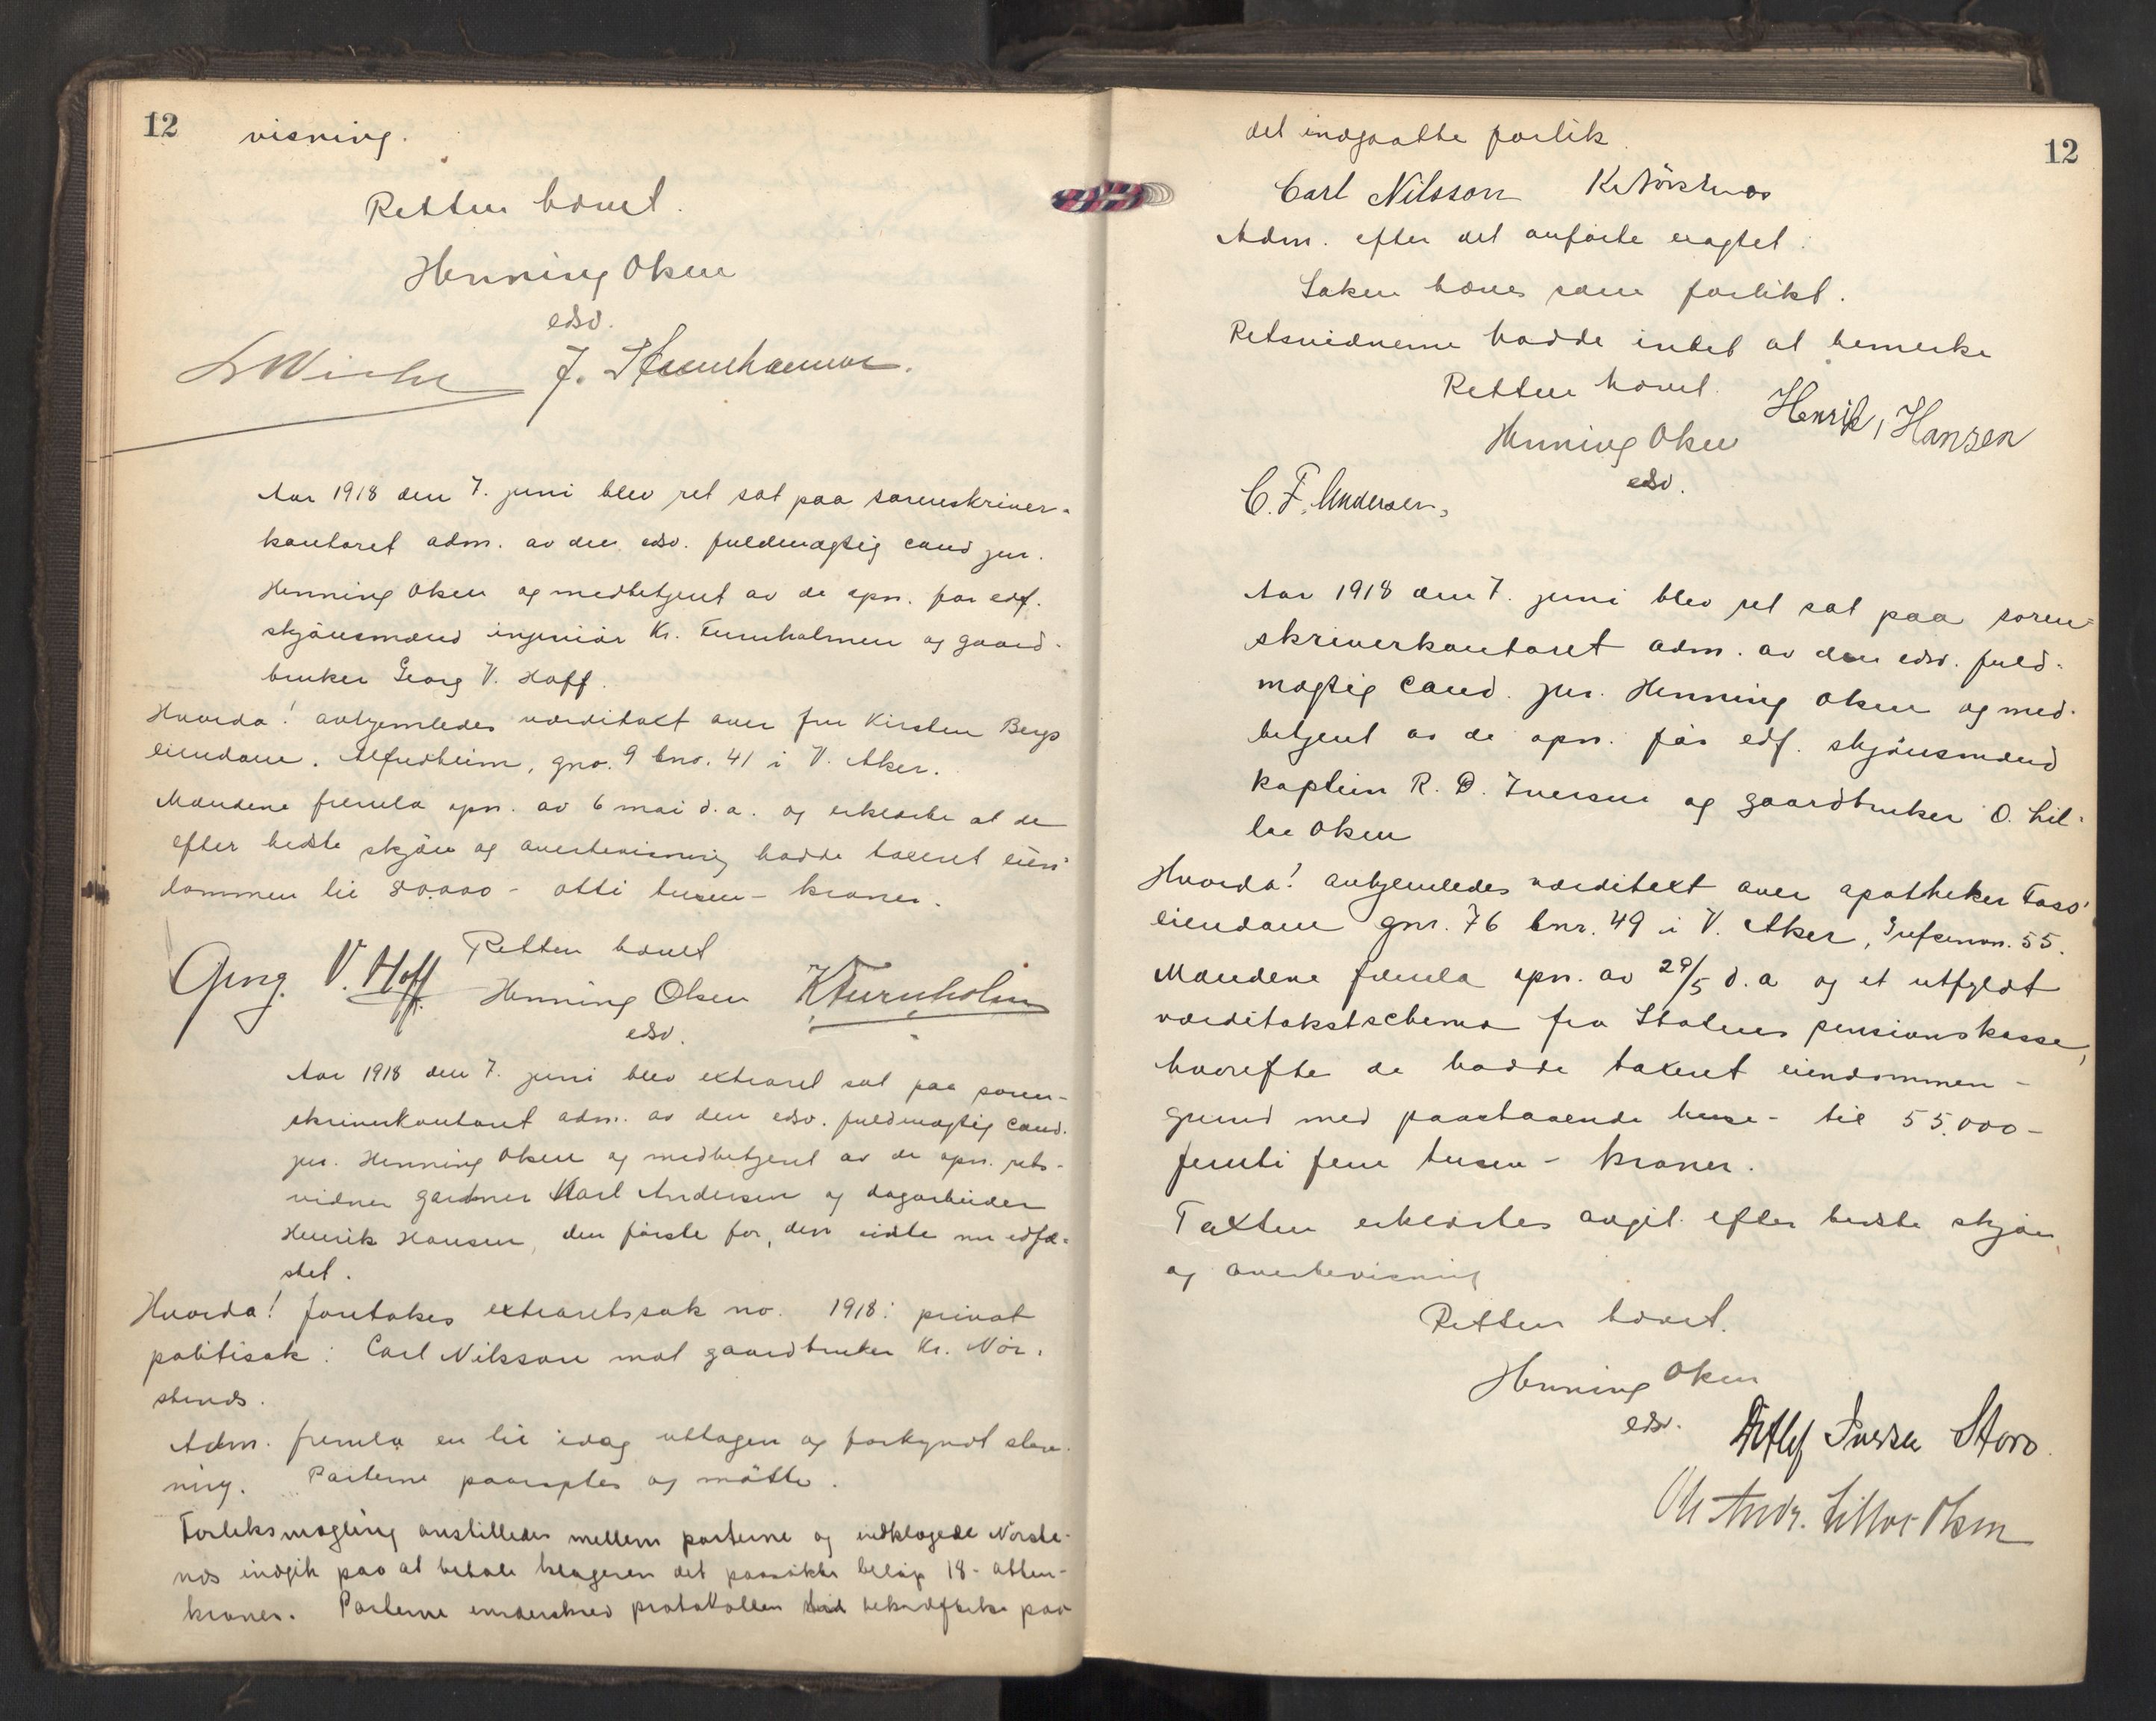 12
visning.
Retten hævet.
Henning Olsen
edsv.
J.
Aar 1918 den 7. juni blev ret sat paa sorenskriver-
kontoret adm. av den edsv. fuldmægtig cand jur.
Henning Olsen og medbetjent av de opn. før edf.
skjönsmænd ingeniör Kr. Furuholmen og gaard-
bruker Georg V. Hoff.
Hvorda! avhjemledes værditaxt over fru Kirsten Bergs
eiendom. Alfredheim, gno. 9 bno. 41 i V. Aker.
Mændene fremla opn. av 6 mai d.a. og erklærte at de
efter bedste skjön og overbevisning hadde taxeret eien-
dommen til 80.000 - otti tusen - kroner.
Retten hævet
Georg. V. Hoff. Henning Olsen KFuruholm
edsv.
Aar 1918 den 7. juni blev extraret sat paa soren-
skriverkontoret adm. av den edsv. fuldmægtig cand.
jur. Henning Olsen og medbetjent av de opn. rets-
vidner gartner Karl Andersen og dagarbeider
Henrik Hansen, den förste för, den sidste nu edfæ-
stet.
Hvorda! foretokes extraretssak no. 1918: privat
politisak: Carl Nilsson mot gaardbruker Kr. Nör-
stenæs.
Adm. fremla en til idag uttagen og forkyndt stev-
ning. Parterne paaroptes og mötte.
Forliksmægling anstilledes mellem parterne og indklagede Nörste-
næs indgik paa at betale klageren det paasökte belöp 18 - atten -
kroner. Parterne underskrev protokollen til bekræftelse paa
12
det indgaatte forlik.
Carl Nilsson K. Nörstenæs
Adm. efter det anförte eragtet:
Saken hæves som forlikt.
Retsvidnerne hadde intet at bemerke
Retten hævet.
Henning Olsen Henrik, Hansen
edsv.
C. F. Andersen,
Aar 1918 den 7. juni blev ret sat paa soren-
skriverkontoret adm. av den edsv. fuld-
mægtig cand. jur. Henning Olsen og med-
betjent av de opn. för edf. skjönsmænd
kaptein R. D. Iversen og gaardbruker O. Lil-
loe Olsen
Hvorda! avhjemledes værditaxt over apotheker Foss'
eiendom gnr. 76 bnr. 49 i V. Aker, Grefsenvn. 55.
Mændene fremla opn. av 29/5 d.a og et utfyldt
værditakstschema fra Statens pensionskasse,
hvorefter de hadde taxeret eiendommen -
grund med paastaaende huse - til 55.000 -
femti fem tusen - kroner.
Taxten erklærtes avgit efter bedste skjön
og overbevisning
Retten hævet.
Henning Olsen
edsv. Detlef Iversen Storo.
Ole Andr. Lilloe-Olsen